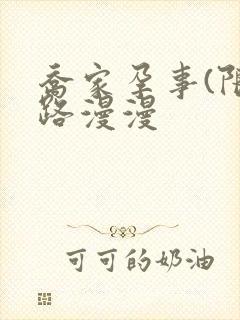 乔家孕事(限
路漫漫
可可的奶油